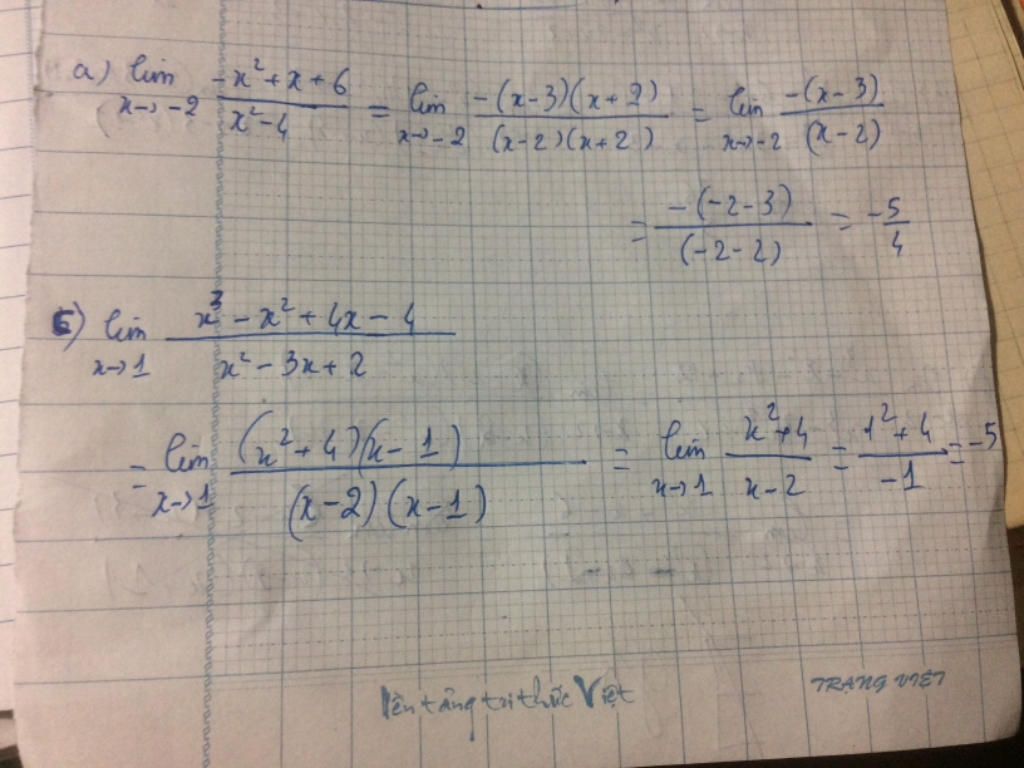 a) lim x→-2 (-x² + x + 6)/(x² - 4) = lim x→-2 (-(x-3)(x+2))/((x-2)(x+2)) = lim x→-2 (-(x-3))/((x-2))
= (-(-2-3))/((-2-2)) = -5/4
b) lim x→1 (x³ - x² + 4x - 4)/(x² - 3x + 2)
= lim x→1 ((x² + 4)(x - 1))/((x-2)(x-1)) = lim x→1 (x² + 4)/(x - 2) = (1² + 4)/(-1) = -5
nền tảng tri thức Việt
TRANG VIỆT